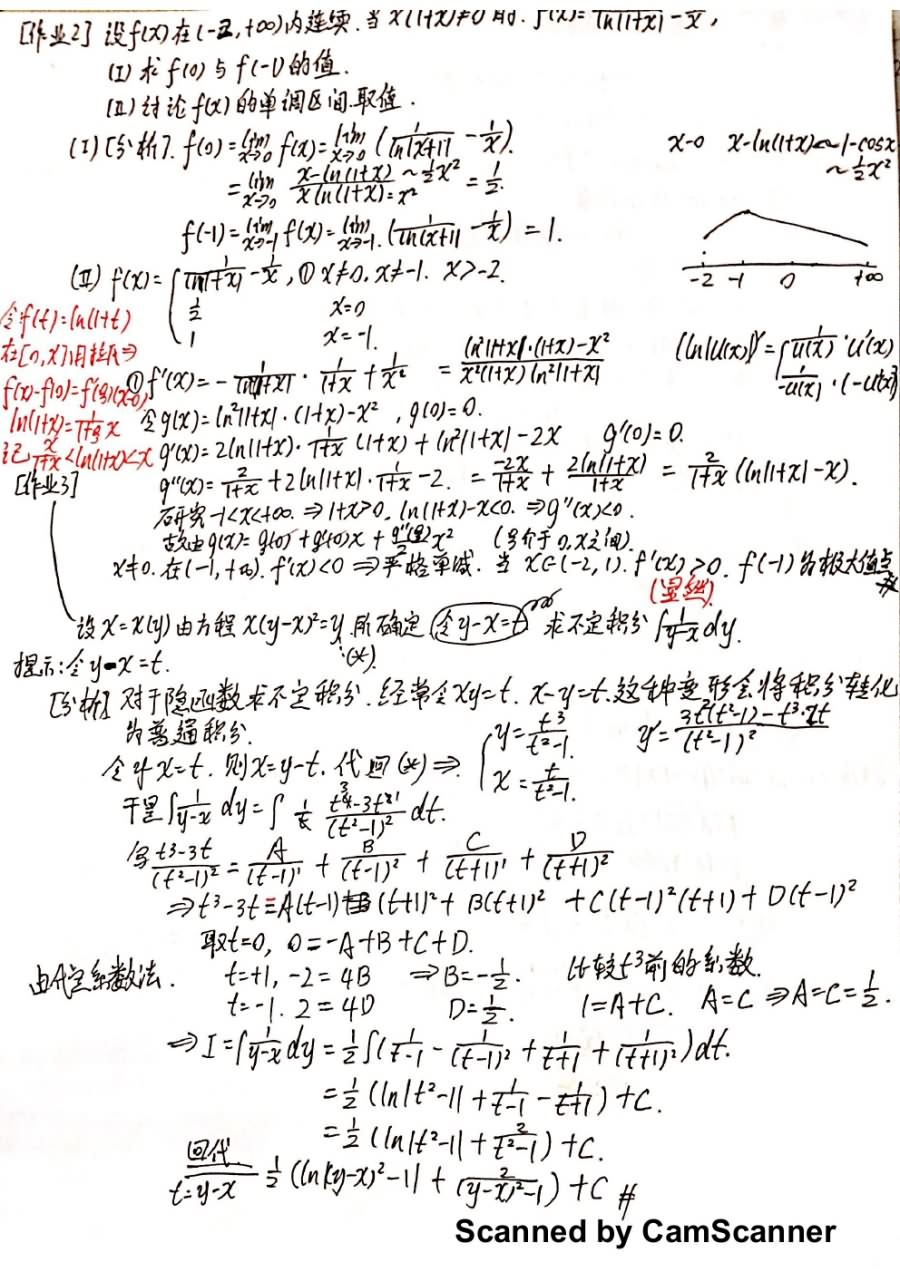 [作业2] 设f(x)在(-2,+∞)内连续.当x(1+x)≠0时.f(x)=1/ln|1+x| - 1/x,
(I) 求f(0)与f(-1)的值.
(II) 讨论f(x)的单调区间.取值.
(I) [分析]. f(0)=lim x→0 f(x)=lim x→0 (1/ln|x+1| - 1/x).
x→0 x-ln(1+x)~1-cosx
~½x²
=lim x→0 (x-ln(1+x) ~ ½x²)/(xln(1+x)=x²) = 1/2.
f(-1)=lim x→-1 f(x)=lim x→-1. (1/ln|x+1| - 1/x) = 1.
-2 -1 0 +∞
(II) f(x)= { 1/ln|1+x| - 1/x, ① x≠0, x≠-1. x>-2.
1/2 x=0
1 x=-1.
令f(t)=ln(1+t)
在[0,x]用拉氏⇒
f(x)-f(0)=f'(ξ)(x-0)
ln(1+x)=1/(1+ξ) x
记 x/(1+x)<ln(1+x)<x
(ln|u(x)|)'= { 1/u(x) · u'(x)
1/-u(x) · (-u'(x))
① f'(x)= - 1/ln²|1+x| · 1/(1+x) + 1/x² = (ln²|1+x|·(1+x)-x²)/(x²(1+x)ln²|1+x|)
令g(x)=ln²|1+x|·(1+x)-x², g(0)=0.
g'(x)=2ln(1+x)·1/(1+x) (1+x)+ln²|1+x|-2x g'(0)=0.
g''(x)=2/(1+x)+2ln|1+x|·1/(1+x)-2. = -2x/(1+x) + 2ln(1+x)/(1+x) = 2/(1+x) (ln|1+x|-x).
研究-1<x<+∞. ⇒1+x>0, ln(1+x)-x<0. ⇒g''(x)<0.
故由g(x)=g(0)+g'(0)x+g''(ξ)/2 x² (ξ介于0,x之间).
x≠0. 在(-1,+∞). f'(x)<0 ⇒严格单减. 当x∈(-2,1). f'(x)>0. f(-1)为极大值点
(显然).
[作业3]
设x=x(y)由方程x(y-x)²=y所确定 令y-x=t 求不定积分∫1/(y-x) dy.
(*)
提示:令y-x=t.
[分析] 对于隐函数求不定积分.经常令xy=t. x-y=t.这种变形会将积分转化
为普通积分.
{ y=t³/(t²-1). y'=(3t²(t²-1)-t³·2t)/(t²-1)²
x=t/(t²-1).
令y-x=t. 则x=y-t. 代回(*)⇒
于是∫1/(y-x) dy=∫ 1/t (t⁴-3t²)/(t²-1)² dt.
令(t³-3t)/(t²-1)² = A/(t-1)¹ + B/(t-1)² + C/(t+1)¹ + D/(t+1)²
⇒t³-3t≡A(t-1)(t+1)²+ B(t+1)² +C(t-1)²(t+1)+D(t-1)²
取t=0, 0=-A+B+C+D.
由待定系数法.
t=+1, -2=4B ⇒B=-1/2. 比较t³前的系数.
t=-1. 2=4D D=1/2. 1=A+C. A=C ⇒A=C=1/2.
⇒I=∫1/(y-x) dy=1/2∫(1/(t-1) - 1/(t-1)² + 1/(t+1) + 1/(t+1)²)dt.
=1/2 (ln|t²-1|+1/(t-1)-1/(t+1))+C.
=1/2 (ln|t²-1|+2/(t²-1))+C.
回代 t=y-x 1/2 (ln|(y-x)²-1| + 2/((y-x)²-1))+C #
Scanned by CamScanner